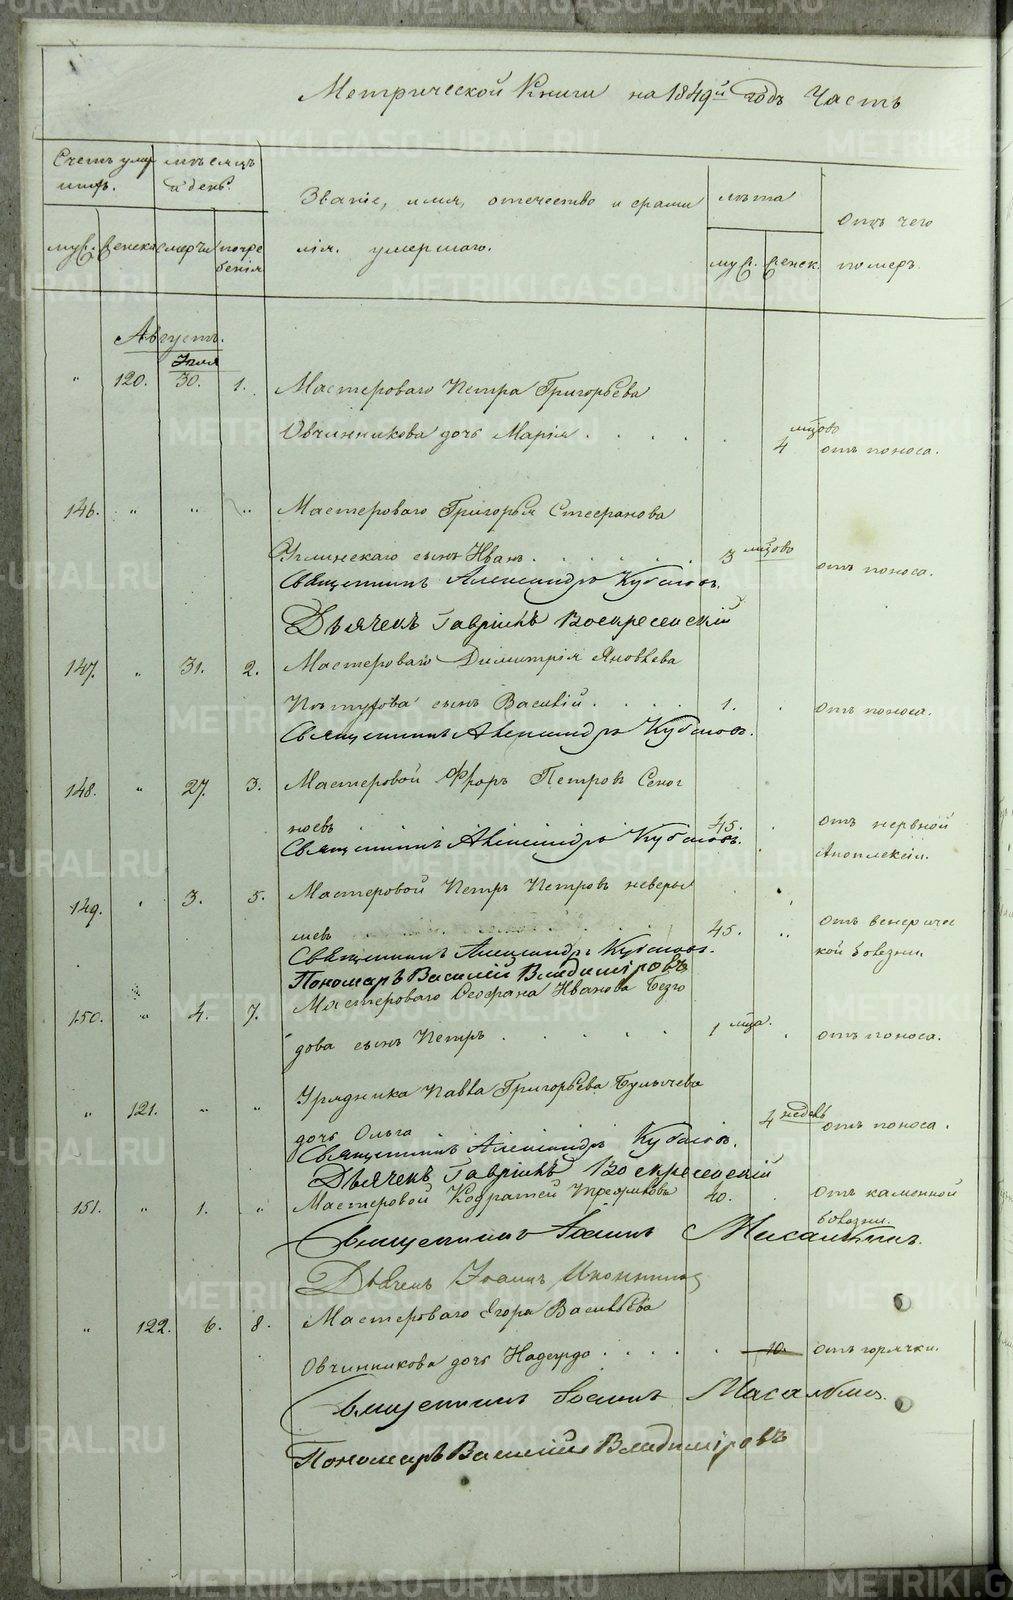 Метрической Книги на 1849й годъ Часть
Счетъ умер мѣсяцъ
шихъ. и день.
Званіе, имя, отечество и фами лѣта Отъ чего
муж. женск. смерти погре
бенія
лія умершаго. муж. женск. померъ.
Августъ.
Іюля
" 120. 30. 1. Мастероваго Петра Григорьева
Овчинникова дочь Марія . . . . 4 мѣсяцовъ отъ поноса.
146. " " " Мастероваго Григорья Стефанова
Углинскаго сынъ Иванъ . . . . 3 мѣсяцовъ отъ поноса.
Священникъ Александръ Кубасовъ.
Дьячекъ Гавріилъ Воскресенскій
147. " 31. 2. Мастероваго Димитрія Яковлева
сынъ Василій . . . . 1. отъ поноса.
Священникъ Александръ Кубасовъ.
148. " 27. 3. Мастеровой Флоръ Петровъ
45. отъ нервной
Священникъ Александръ Кубасовъ. Апоплексіи.
149. " 3. 5. Мастеровой Петръ Петровъ
45. " отъ венериче
Священникъ Александръ Кубасовъ. кой болезни.
Пономарь Василій Владиміровъ
150. " 4. 7. Мастероваго Феофана Иванова Безго
дова сынъ Петръ . . . . 1 мѣсяца. отъ поноса.
Урядника Павла Григорьева Булычева
" 121. " " дочь Ольга 4 недѣль отъ поноса.
Священникъ Александръ Кубасовъ.
Дьячекъ Гавріилъ Воскресенскій
151. " 1. " Мастеровой Кодратей 40. отъ каменной
болезни.
Священникъ Іоаннъ
Дьячекъ Іоаннъ
" 122. 6. 8. Мастероваго Егора Васильева
Овчинникова дочь Надежда . . . . 10. отъ горячки.
Священникъ Іоаннъ
Пономарь Василій Владиміровъ